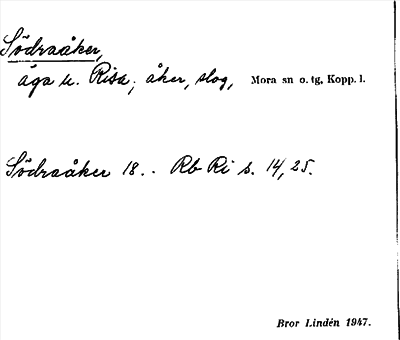 Södraåker,
äga u. Risa; åker, slog, Mora sn o. tg, Kopp. l.
Södraåker 18.. Rb Ri s. 14, 25.
Bror Lindén 1947.